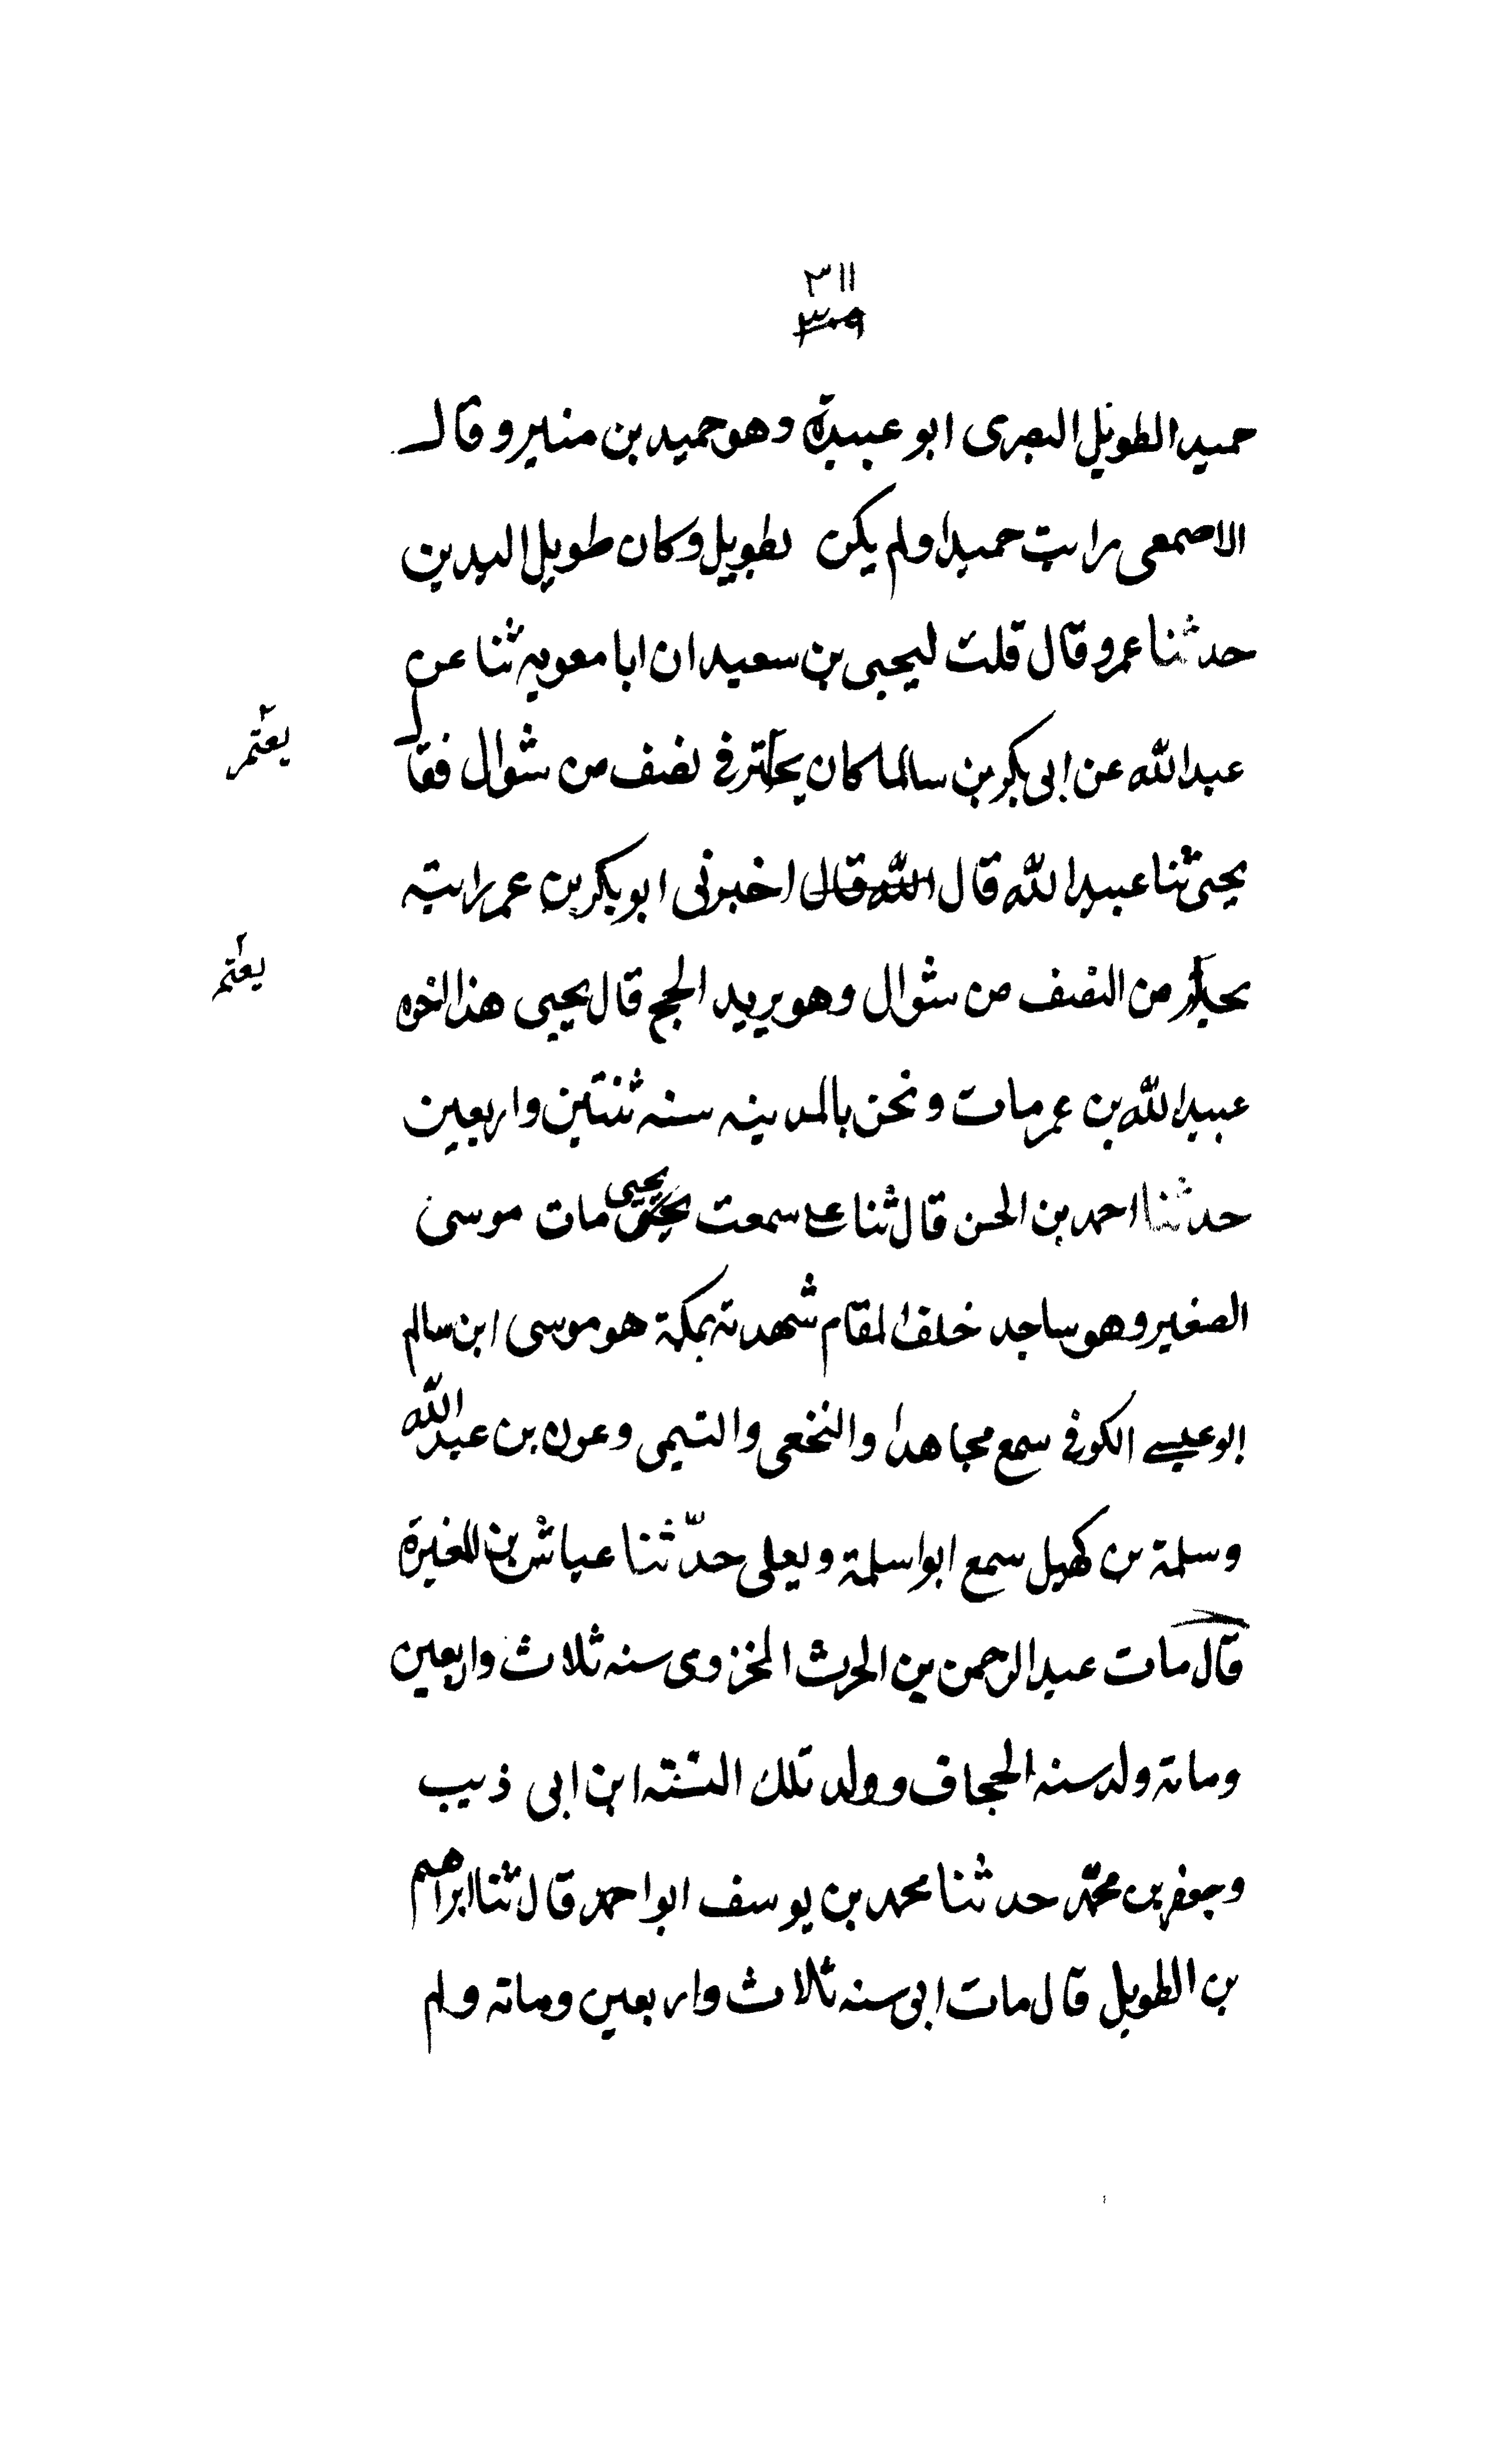 ٣١١
٣٠٩
حميد الطويل البصرى ابو عبيدة وهو حميد بن منير وقال
الاصمعى رايت حميدا ولم يكن بطويل وكان طويل اليدين
حدثنا عمرو قال قلت ليحيى بن سعيد ان ابا معويه ثنا عن
عبد الله عن ابى بكر بن سالم كان يحتر فى نصف من شوال فقال
يعتمر
يحيى ثنا عبيد الله قال الله قال اخبرنى ابو بكر بن عمر رايته
من النصف من شوال وهو يريد الحج قال يحيى هذا اخوه
يعتمر
عبيد الله بن عمر مات ونحن بالمدينه سنه ثنتين واربعين
حدثنا احمد بن الحسن قال ثنا على سمعت يحيى مات موسى
الصغير وهو ساجد خلف المقام شهدته بمكة هو موسى ابن سالم
ابو عيسى الكوفى سمع مجاهدا والنخعى والتيمى وعون بن عبد الله
وسلمة بن كهيل سمع ابو اسلمة ويعلى حدّثنا عياش بن المغيرة
قال مات عبد الرحمن بن الحرث المخزومى سنه ثلاث واربعين
ومائة ولد سنه الحجاف وولد تلك السنة ابن ابى ذيب
وجعفر بن محمّد حدثنا محمد بن يوسف ابو احمد قال ثنا ابراهيم
بن الطويل قال مات ابى سنه ثلاث واربعين ومائة ولم